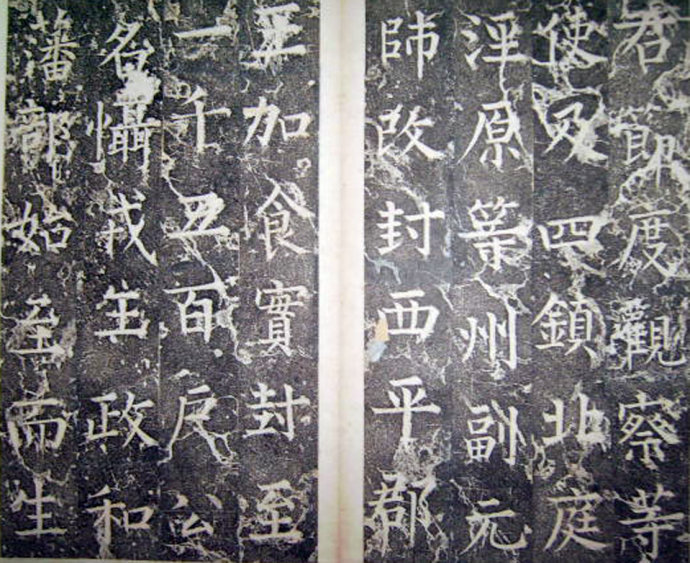 右節度觀察等
使及四鎮北庭
涇原等州副元
帥改封西平郡
王加食實封至
一千五百戶公
名懾戎主政和
藩部始至而生